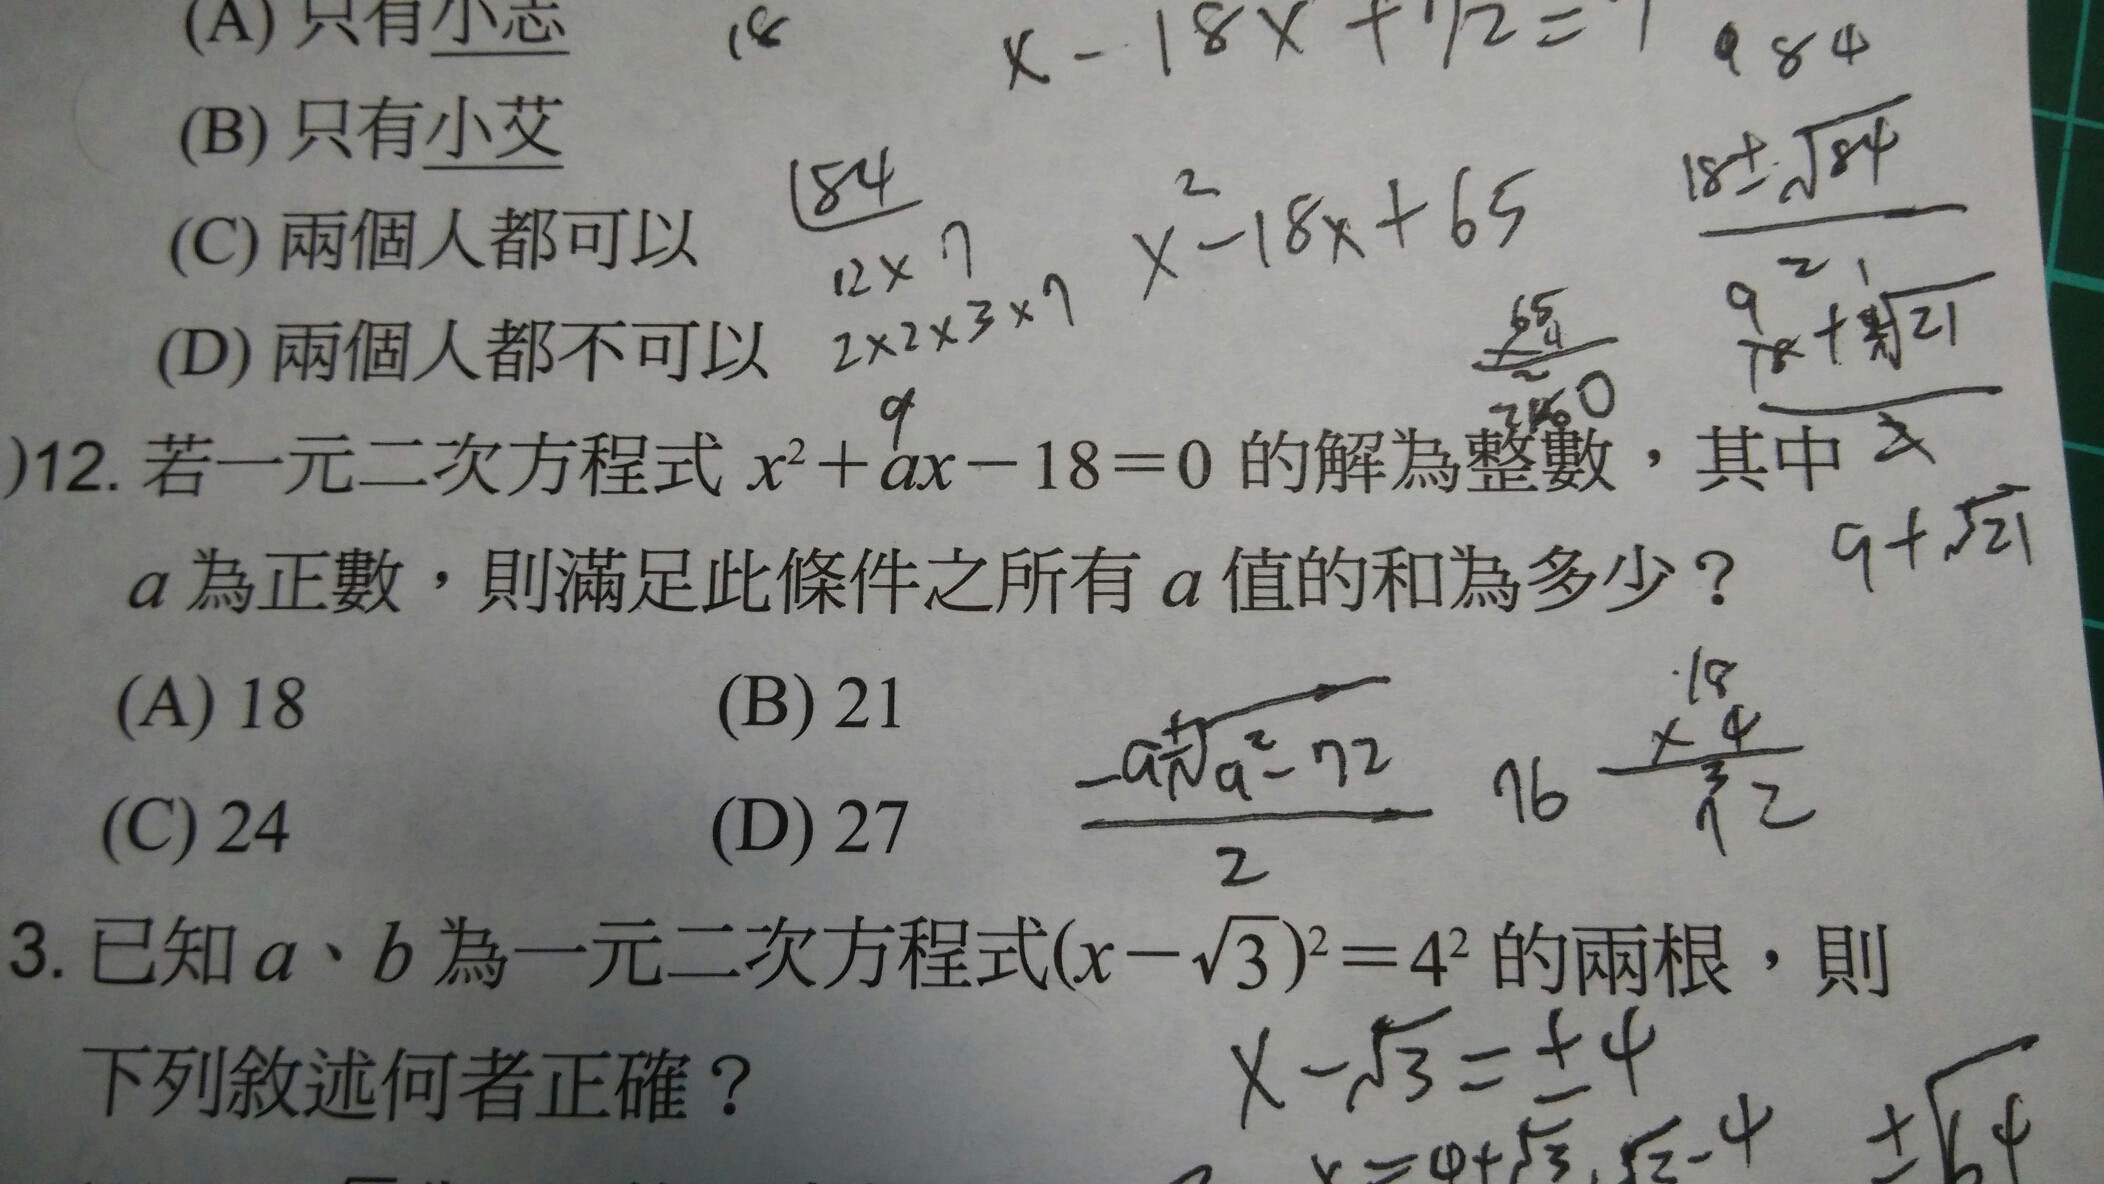 (A) 只有小志
18
x - 18x + 72 = 
984
(B) 只有小艾
84
x² - 18x + 65
18 ± √84
2
(C) 兩個人都可以
12 x 7
2x2x3x7
65
(D) 兩個人都不可以
9
+ √21
)12. 若一元二次方程式 x²+ax-18=0 的解為整數，其中
9+√21
a 為正數，則滿足此條件之所有 a 值的和為多少？
(A) 18
(B) 21
-a±√a²-72
2
76
18
x 4
72
(C) 24
(D) 27
3. 已知 a、b 為一元二次方程式(x-√3)²=4² 的兩根，則
x-√3=±4
下列敘述何者正確？
x=4+√3,
-4
±√64